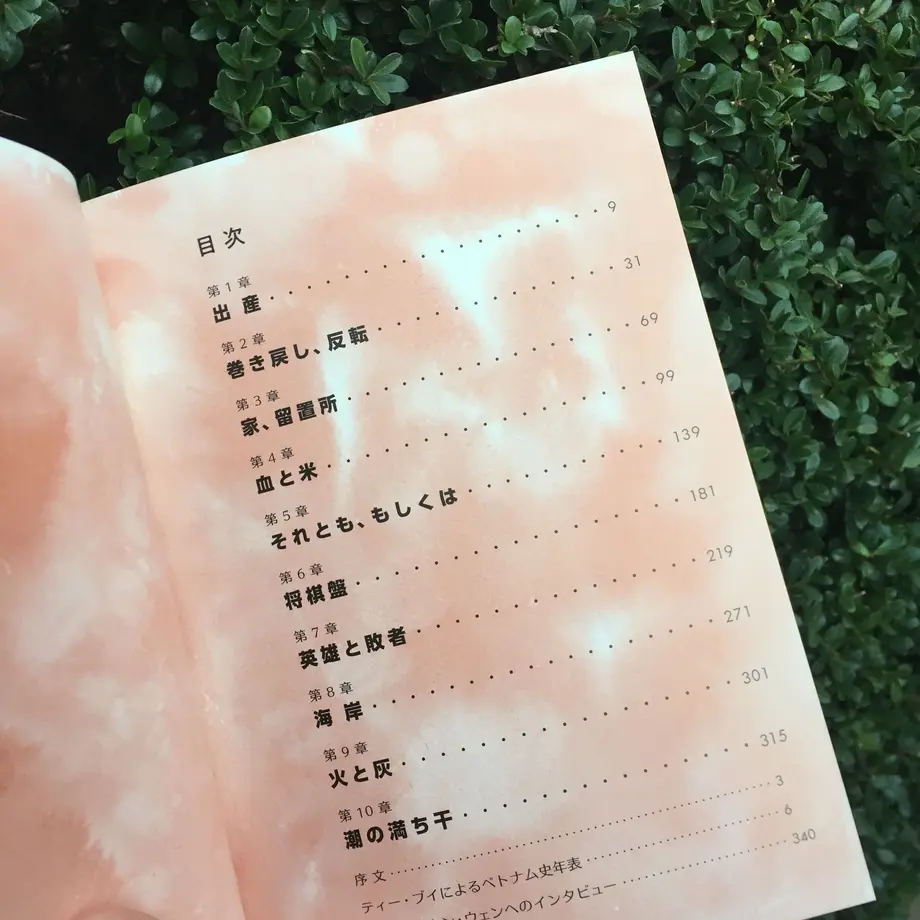 目次
第1章
出産 ・・・・・・・・・・・・・・・・ 9
第2章
巻き戻し、反転 ・・・・・・・・・・・・ 31
第3章
家、留置所 ・・・・・・・・・・・・・・ 69
第4章
血と米 ・・・・・・・・・・・・・・・・ 99
第5章
それとも、もしくは ・・・・・・・・・・ 139
第6章
将棋盤 ・・・・・・・・・・・・・・・・ 181
第7章
英雄と敗者 ・・・・・・・・・・・・・・ 219
第8章
海岸 ・・・・・・・・・・・・・・・・・ 271
第9章
火と灰 ・・・・・・・・・・・・・・・・ 301
第10章
潮の満ち干 ・・・・・・・・・・・・・・ 315
序文 ・・・・・・・・・・・・・・・・・ 3
ティー・ブイによるベトナム史年表 ・・・・ 6
ウェンへのインタビュー ・・・・・・・・ 340